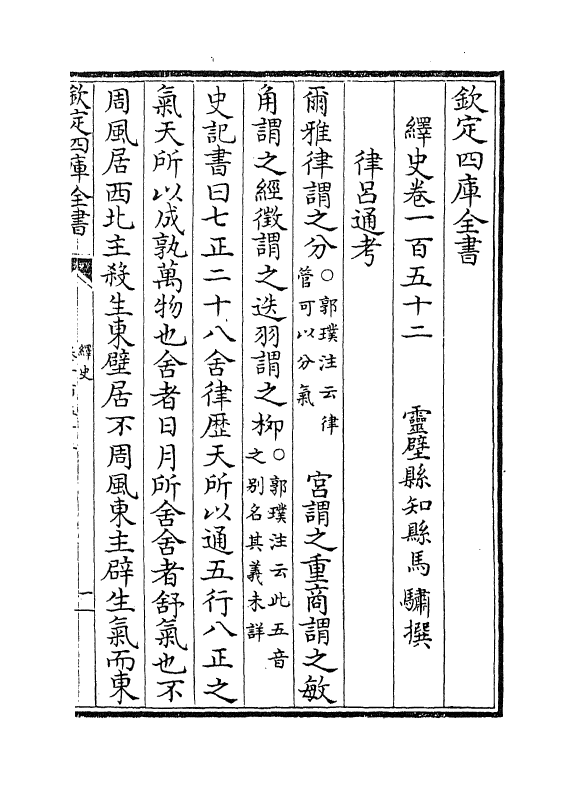 欽定四庫全書
繹史卷一百五十二　　靈壁縣知縣馬驌撰
律呂通考
爾雅律謂之分○郭璞注云律管可以分氣　宮謂之重商謂之敏
角謂之經徵謂之迭羽謂之柳○郭璞注云此五音之别名其義未詳
史記書曰七正二十八舍律歴天所以通五行八正之
氣天所以成孰萬物也舍者日月所舍舍者舒氣也不
周風居西北主殺生東壁居不周風東主辟生氣而東
欽定四庫全書
繹史
一